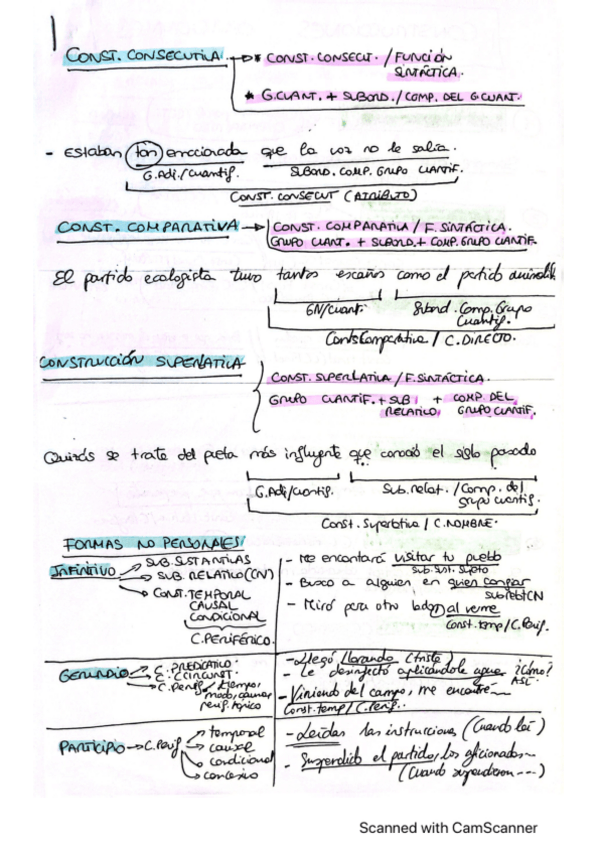 CONST. CONSECUTIVA → * CONST. CONSECUT. / FUNCIÓN
SINTÁCTICA.
* G.CUANT. + SUBORD. / COMP. DEL G.CUANT.
- Estaban tan emocionada que la voz no le salía.
G.Adj./Cuantif. SUBORD. COMP. GRUPO CUANTIF.
CONST. CONSECUT (ATRIBUTO)
CONST. COMPARATIVA → CONST. COMPARATIVA / F. SINTÁCTICA.
GRUPO CUANT. + SUBORD. + COMP. GRUPO CUANTIF.
El partido ecologista tuvo tantos escaños como el partido
GN/Cuant. Subord. Comp. Grupo
Cuantif.
Const Comparativa / C. DIRECTO.
CONSTRUCCIÓN SUPERLATIVA
CONST. SUPERLATIVA / F. SINTÁCTICA.
GRUPO CUANTIF. + SUB + COMP. DEL
RELATIVO GRUPO CUANTIF.
Quizás se trate del poeta más influyente que conoció el siglo pasado
G.Adj/Cuantif. Sub. relat. / Comp. del
grupo cuantif.
Const. Superlativa / C. NOMBRE.
FORMAS NO PERSONALES
INFINITIVO → SUB. SUSTANTIVAS
→ SUB. RELATIVO (CN)
→ CONST. TEMPORAL
CAUSAL
CONDICIONAL
C. PERIFÉRICO.
- Me encantará visitar tu pueblo
sub. sust. sujeto
- Busco a alguien en quien confiar
sub relat CN
- Miró para otro lado al verme
Const. temp / C. Perif.
GERUNDIO → C. PREDICATIVO.
→ C. CIRCUNST.
→ C. Perif / tiempo,
modo, causa,
perif. tópico
- Llegó llorando (triste)
- Le desinfectó aplicándole agua ¿Cómo?
- Viniendo del campo, me encontré
Const. temp / C. Perif.
PARTICIPIO → C. Perif → temporal
→ causal
→ condicional
→ concesivo
- Leídas las instrucciones (Cuando leí)
- Suspendido el partido, los aficionados
(Cuando suspendieron ---)
Scanned with CamScanner